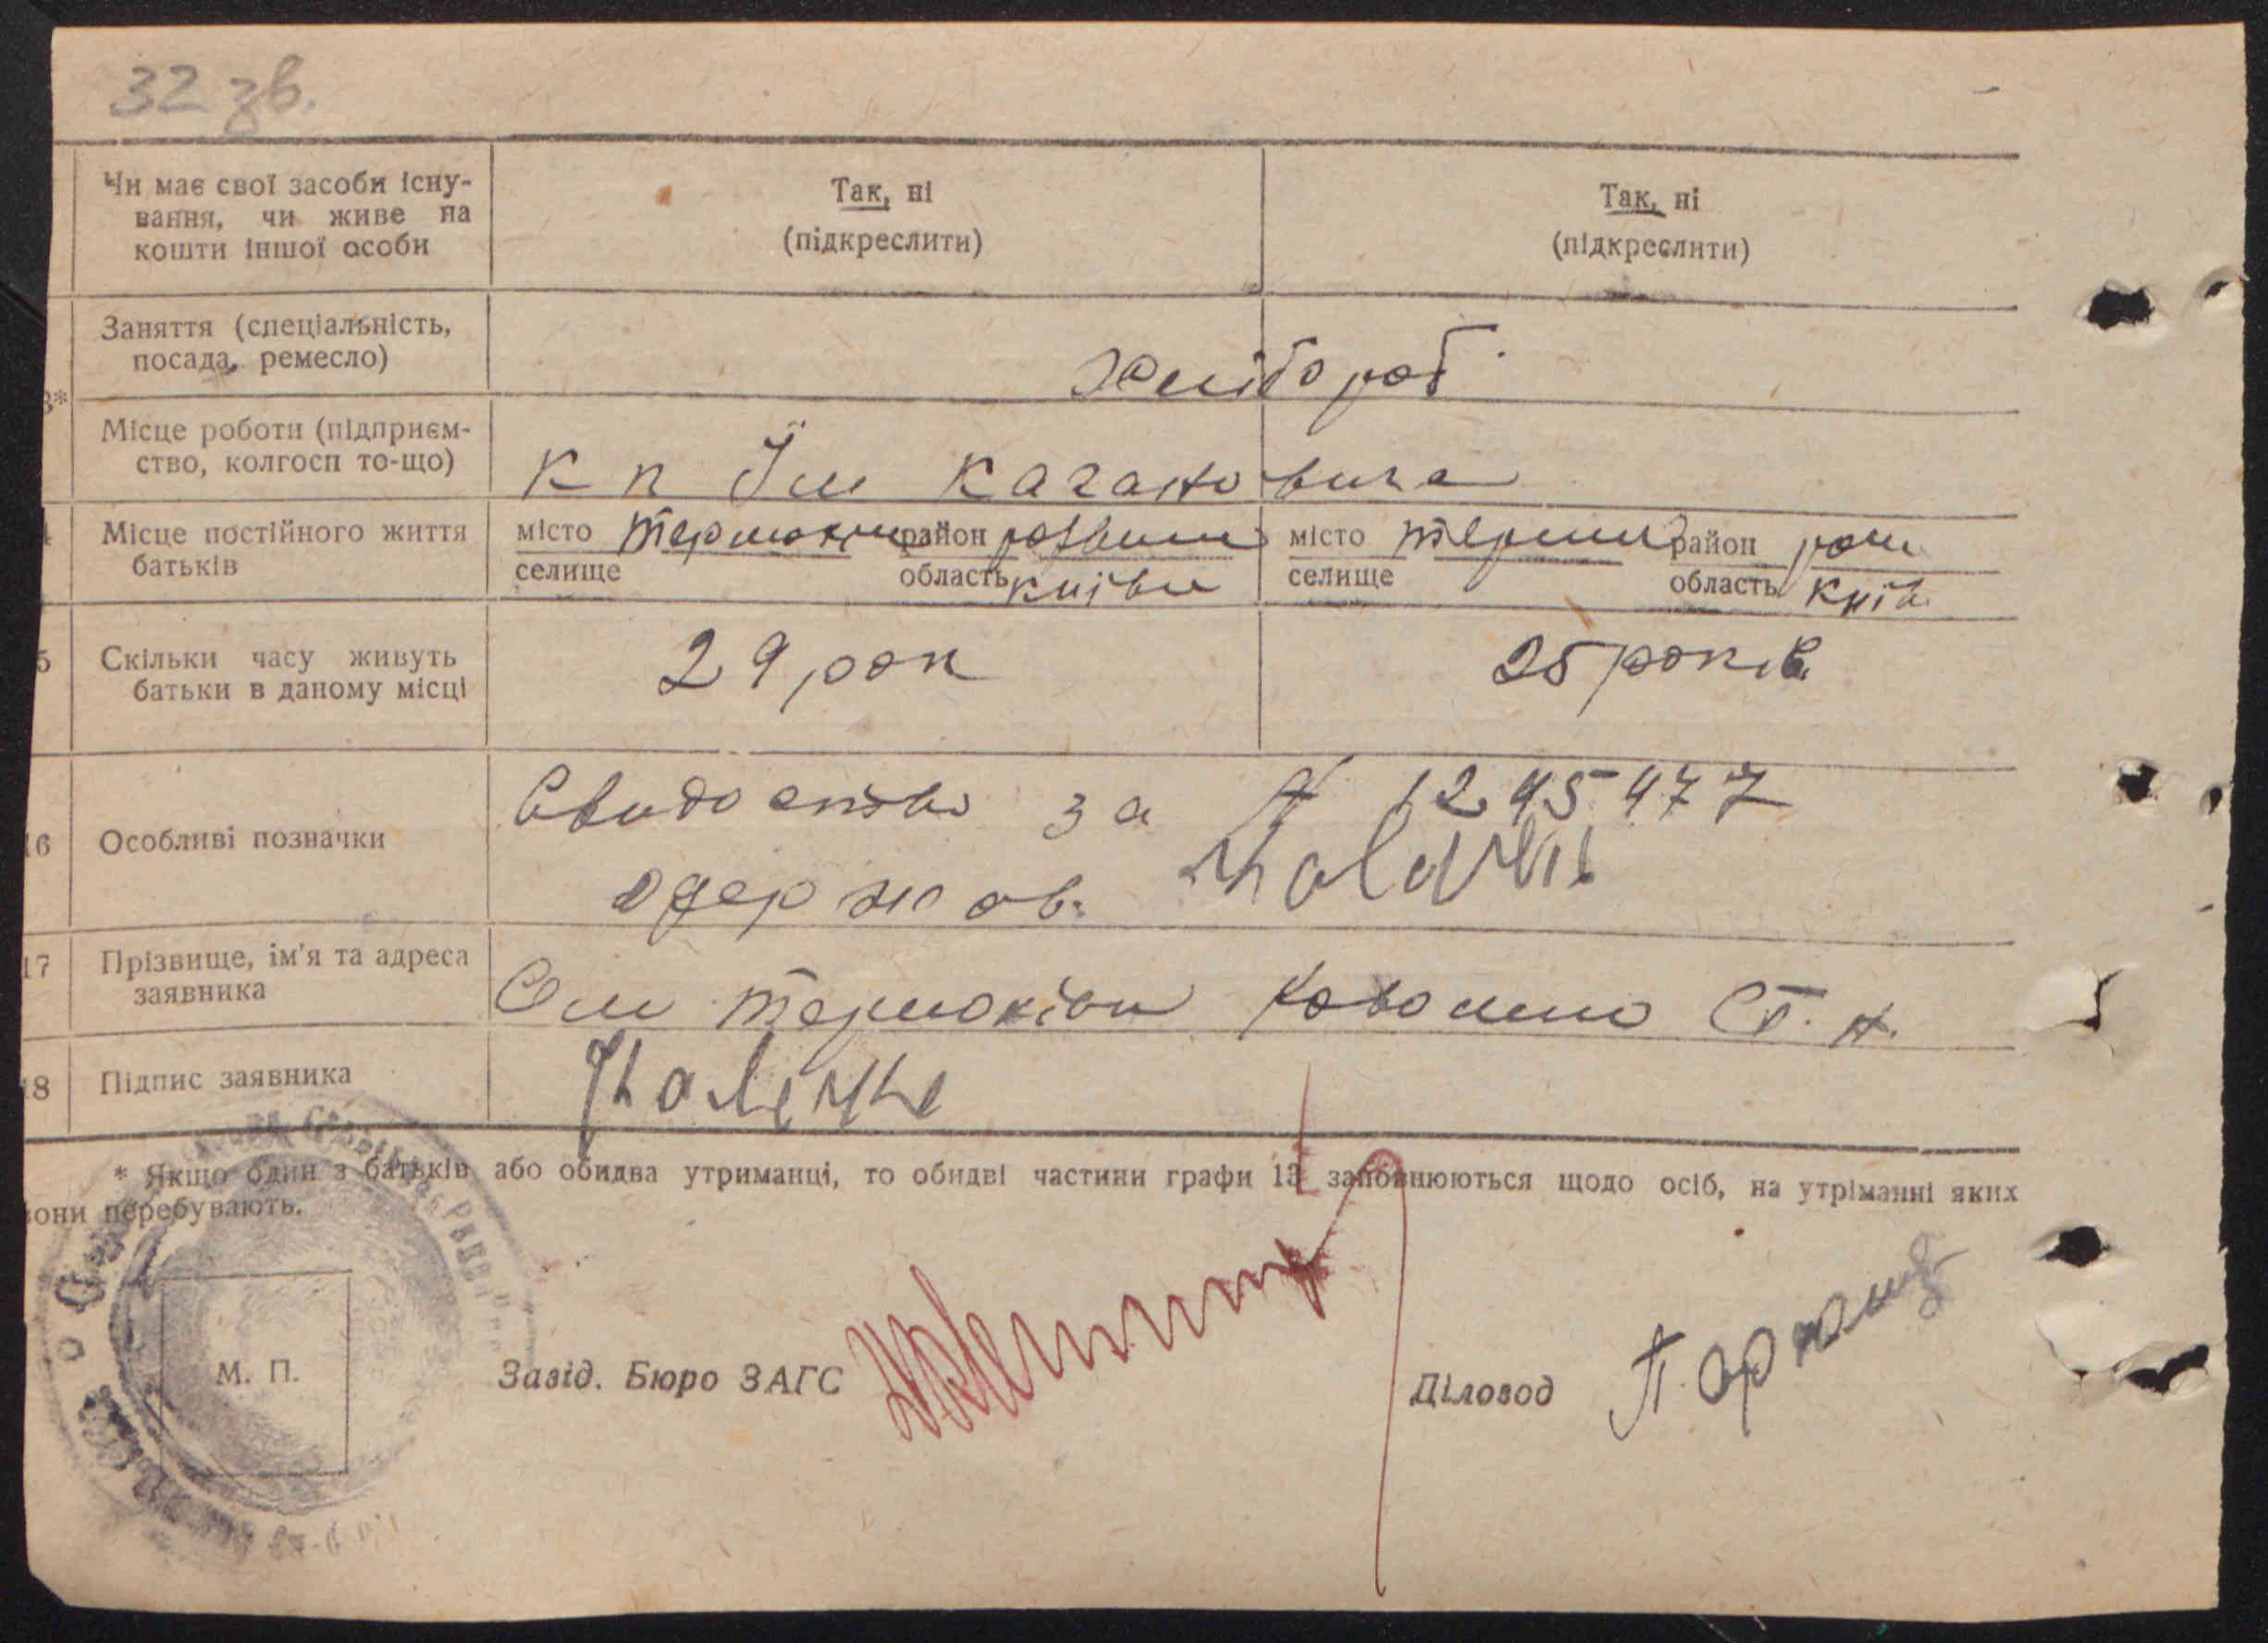 32 зв.
Чи має свої засоби існу-
вання, чи живе на
кошти іншої особи
Так, ні
(підкреслити)
Так, ні
(підкреслити)
Заняття (спеціальність,
посада, ремесло)
Хлібороб
3*
Місце роботи (підприєм-
ство, колгосп то-що)
К п Їм Кагановича
Місце постійного життя
батьків
місто
район
селище
область Київ
місто
район
селище
область Київ
5
Скільки часу живуть
батьки в даному місці
29 рок
25 років
16
Особливі позначки
Свидоство за № 1245477
одержав.
17
Прізвище, ім'я та адреса
заявника
Сли Ст. А.
18
Підпис заявника
* Якщо один з батьків або обидва утриманці, то обидві частини графи 13 заповнюються щодо осіб, на утріманні яких
вони перебувають.
М. П.
Завід. Бюро ЗАГС
Діловод